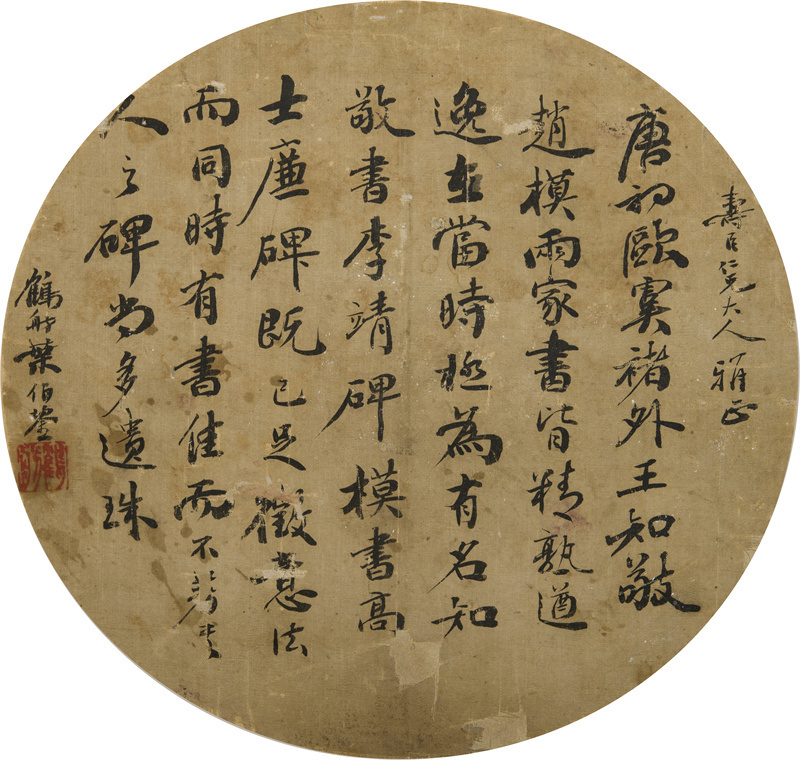 壽臣仁兄大人雅正
唐初歐虞褚外王知敬
趙模兩家書皆精熟遒
逸在當時極為有名知
敬書李靖碑模書高
士廉碑既已足徵法
而同時有書佳而不其
人之碑尚多遺珠
鶴舟葉伯